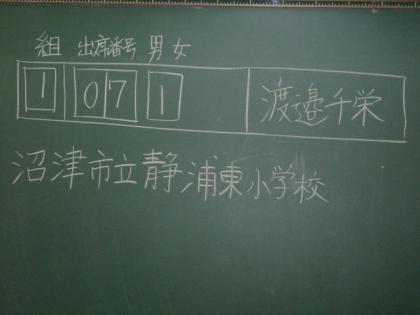 組 出席番号 男女
1 07 1 渡邉千栄
沼津市立静浦東小学校